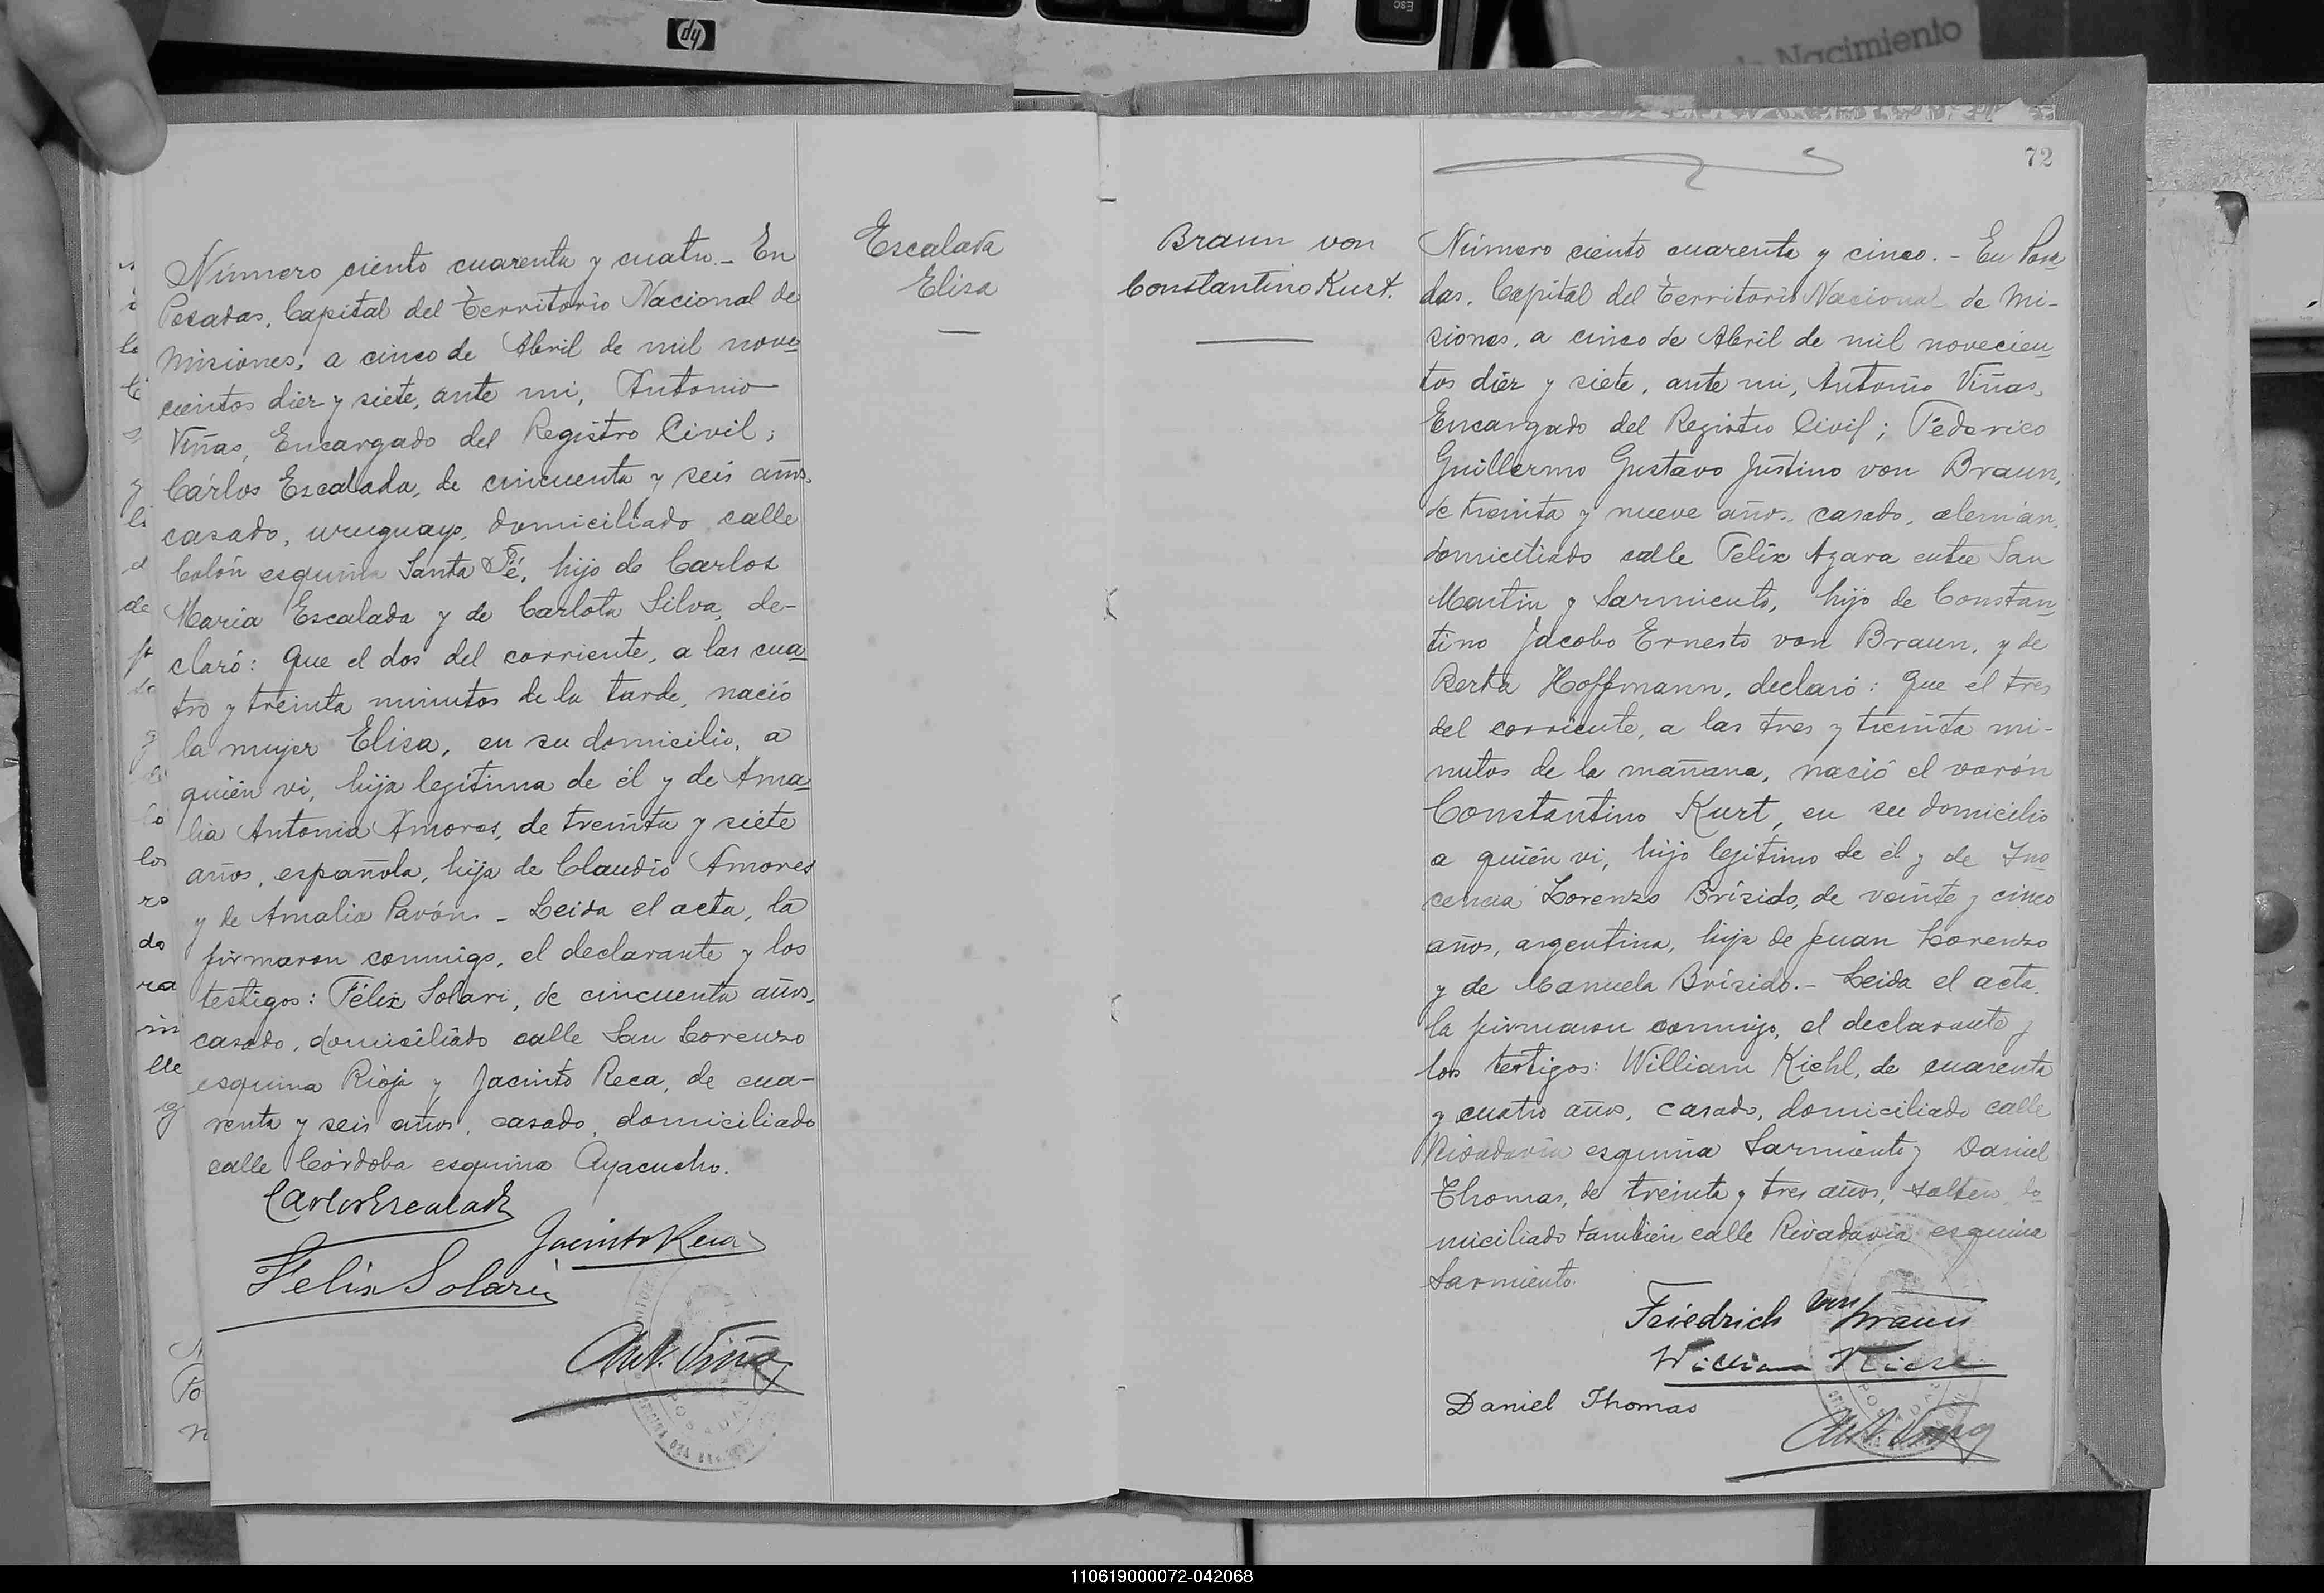 hp
ESC
de Nacimiento
Número ciento cuarenta y cuatro.- En
Posadas, Capital del Territorio Nacional de
Misiones, a cinco de Abril de mil nove
cientos diez y siete, ante mi, Antonio
Viñas, Encargado del Registro Civil;
Cárlos Escalada, de cincuenta y seis años,
casado, uruguayo, domiciliado calle
Colón esquina Santa Fé, hijo de Carlos
María Escalada y de Carlota Silva, de-
claró: Que el dos del corriente, a las cua
tro y treinta minutos de la tarde, nació
la mujer Elisa, en su domicilio, a
quién vi, hija legítima de él y de Ama
lia Antonia Amores, de treinta y siete
años, española, hija de Claudio Amores
y de Amalia Pavón. - Leida el acta, la
firmaron conmigo, el declarante y los
testigos: Félix Solari, de cincuenta años,
casado, domiciliado calle San Lorenzo
esquina Rioja y Jacinto Reca, de cua-
renta y seis años, casado, domiciliado
calle Córdoba esquina Ayacucho.
Carlos Escalada
Jacinto Reca
Felix Solari
Ant. Viñas
Escalada
Elisa
Braun von
Constantino Kurt.
72
Número ciento cuarenta y cinco. - En Posa
das, Capital del Territorio Nacional de Mi-
siones, a cinco de Abril de mil novecien
tos diez y siete, ante mi, Antonio Viñas,
Encargado del Registro Civil; Féderico
Guillermo Gustavo Justino von Braun,
de treinta y nueve años, casado, alemán,
domiciliado calle Félix Azara entre San
Martin y Sarmiento, hijo de Constan
tino Jacobo Ernesto von Braun, y de
Berta Hoffmann, declaró: Que el tres
del corriente, a las tres y treinta mi-
nutos de la mañana, nació el varón
Constantino Kurt, en su domicilio
a quién vi, hijo legítimo de él y de Ino
cencia Lorenzo Brísido, de veinte y cinco
años, argentina, hija de Juan Lorenzo
y de Manuela Brísido.- Leida el acta,
la firmaron conmigo, el declarante y
los testigos: William Kiehl, de cuarenta
y cuatro años, casado, domiciliado calle
Rivadavia esquina Sarmiento y Daniel
Thomas, de treinta y tres años, soltero, do
miciliado también calle Rivadavia esquina
Sarmiento.
Friedrich von Braun
William Kiehl
Daniel Thomas
Ant. Viñas
110619000072-042068